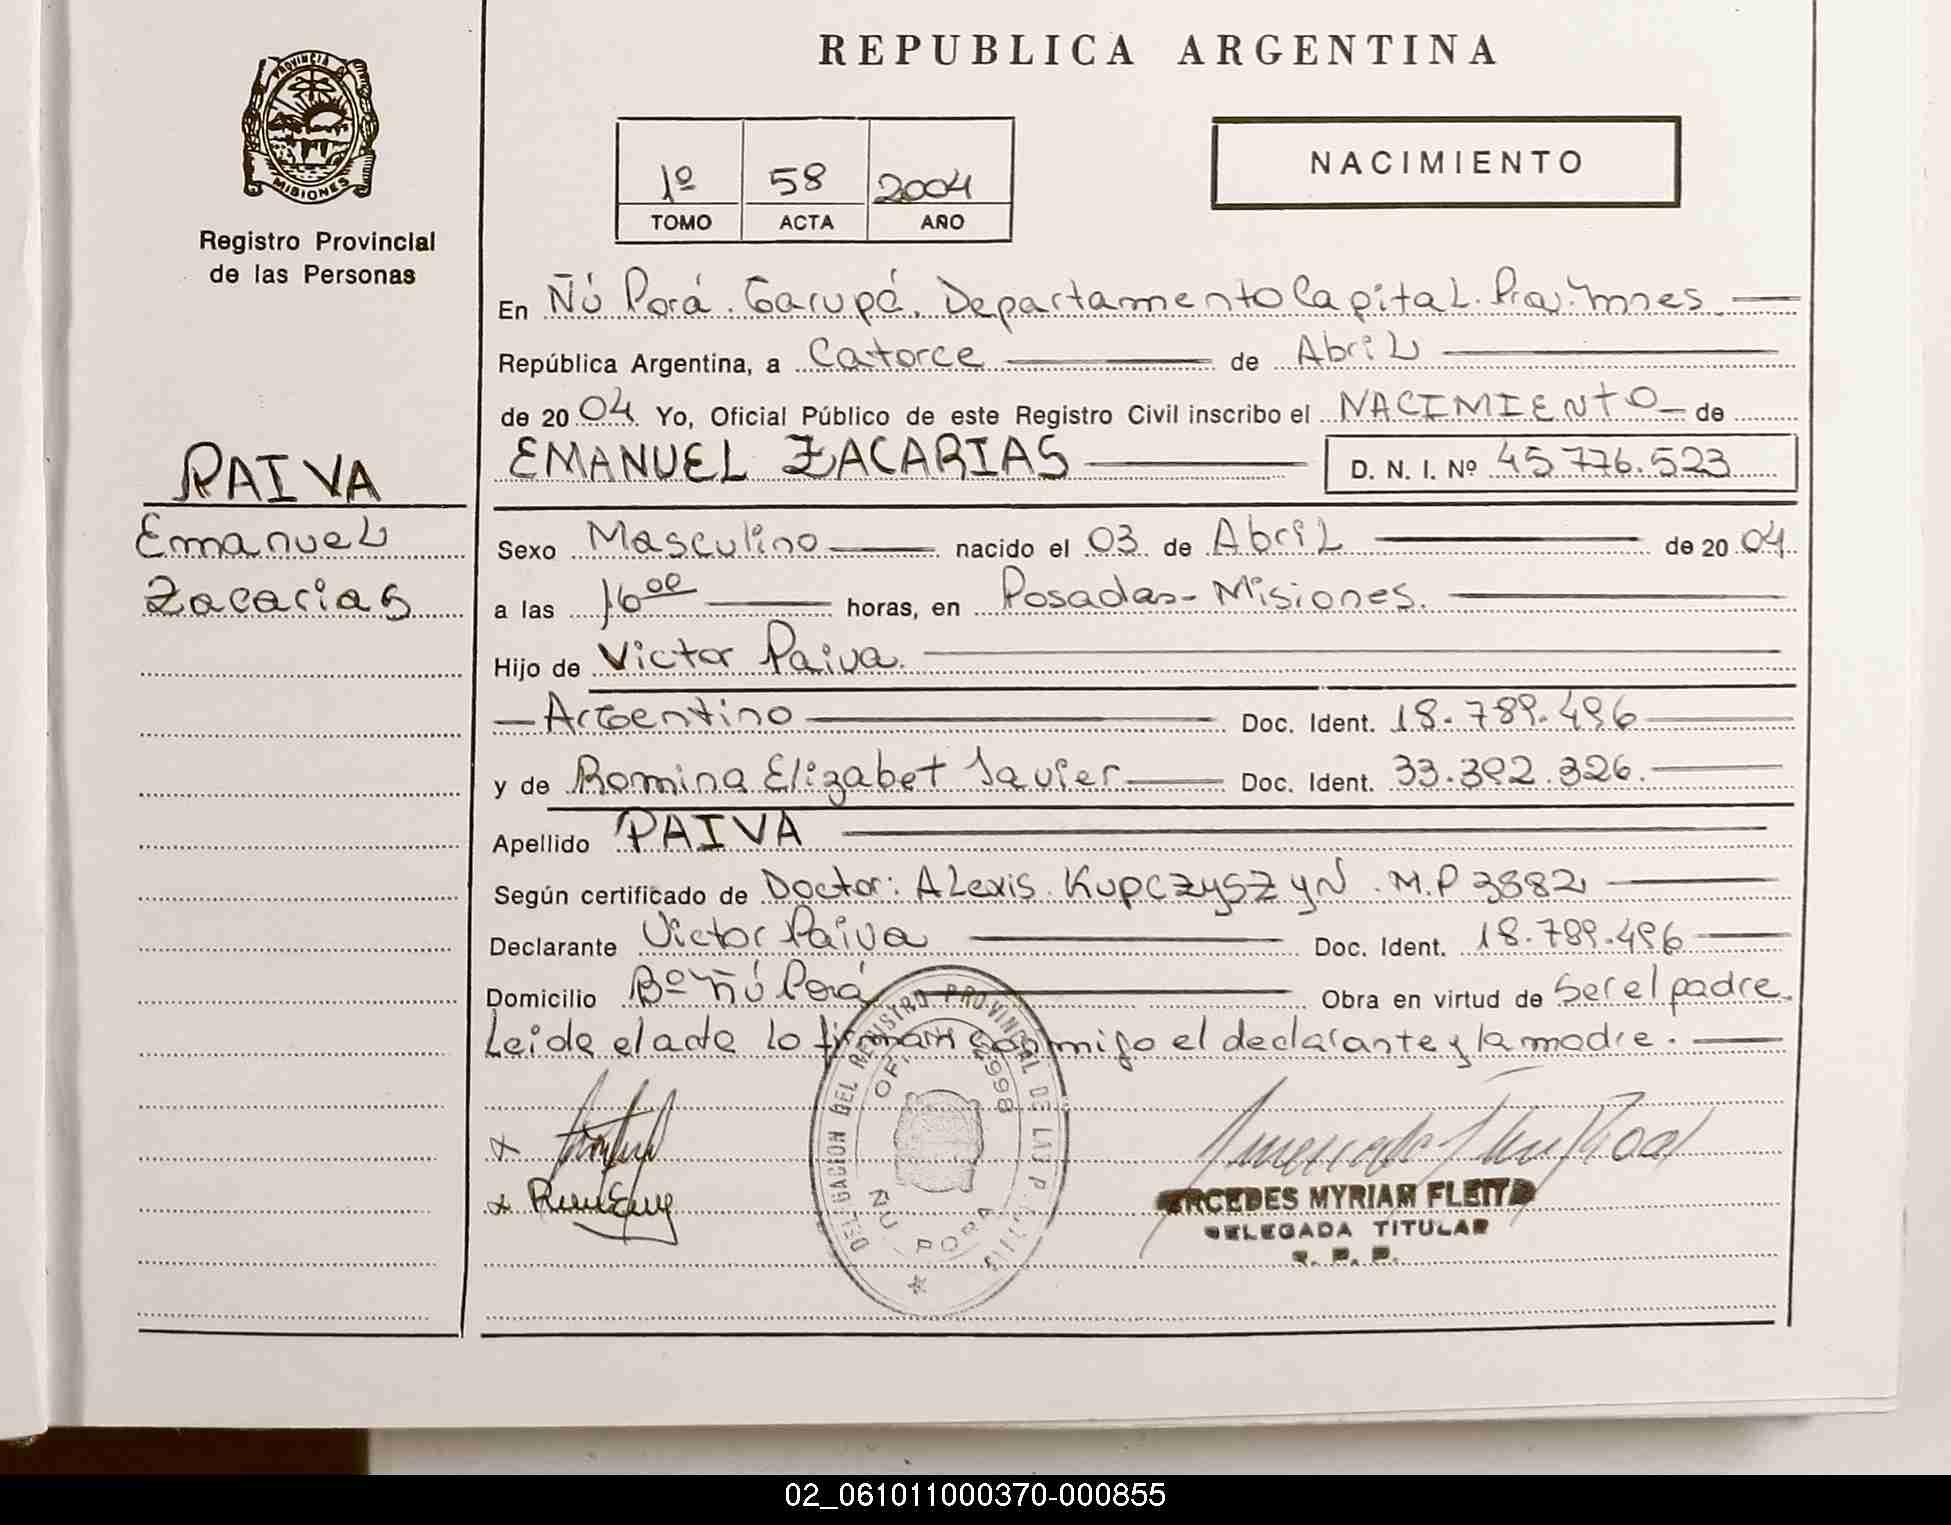 REPUBLICA ARGENTINA
PROVINCIA D
MISIONES
Registro Provincial
de las Personas
1º 58 2004
TOMO ACTA AÑO
NACIMIENTO
En Ñú Porá. Garupá. Departamento Capital. Prov. Mnes.
República Argentina, a Catorce de Abril
de 2004 Yo, Oficial Público de este Registro Civil inscribo el NACIMIENTO de
PAIVA
Emanuel
Zacarias
EMANUEL ZACARIAS D. N. I. Nº 45.776.523
Sexo Masculino nacido el 03 de Abril de 2004
a las 16 00 horas, en Posadas - Misiones.
Hijo de Victor Paiva.
Argentino Doc. Ident. 18.789.496
y de Romina Elizabet Javier Doc. Ident. 33.392.326.
Apellido PAIVA
Según certificado de Doctor: Alexis Kupczyszyn. M.P 3882
Declarante Victor Paiva Doc. Ident. 18.789.496
Domicilio Bº Ñú Porá Obra en virtud de Ser el padre.
Leida el acta lo firman conmigo el declarante y la madre.
DELEGACION DEL REGISTRO PROVINCIAL DE LAS P
OF.
ÑU - PORA
MYRIAM FLEITA
DELEGADA TITULAR
02_061011000370-000855